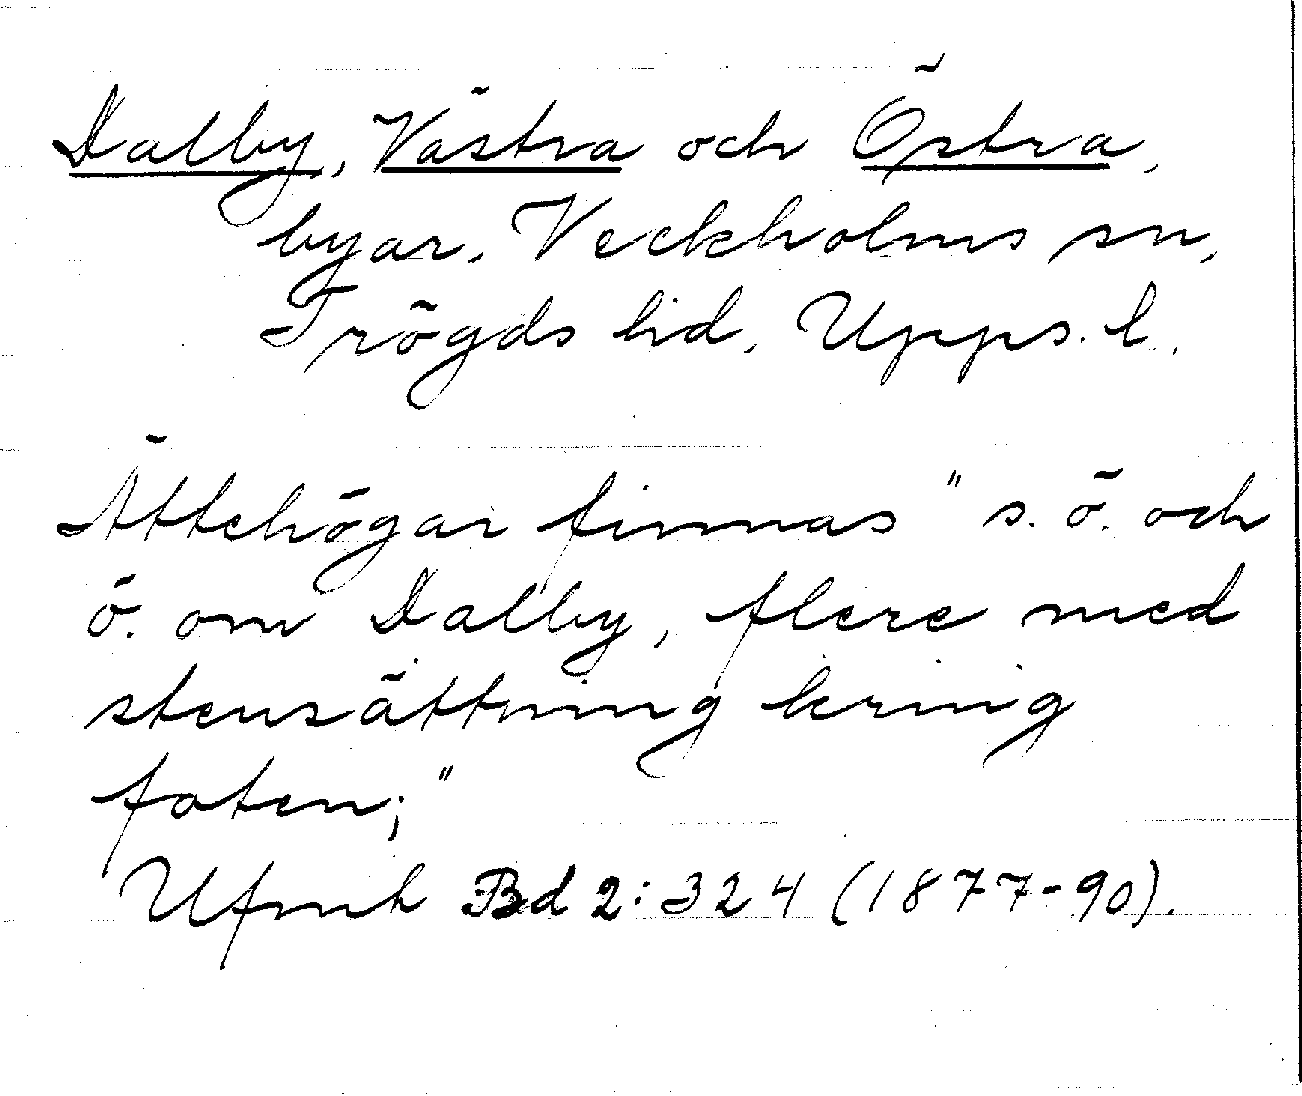 Dalby, Västra och Östra,
byar, Veckholms sn,
Trögds hd, Upps. l.
Ättehögar finnas " s. ö. och
ö. om Dalby, flere med
stensättning kring
foten;"
Ufmh Bd 2: 324 (1877-90).